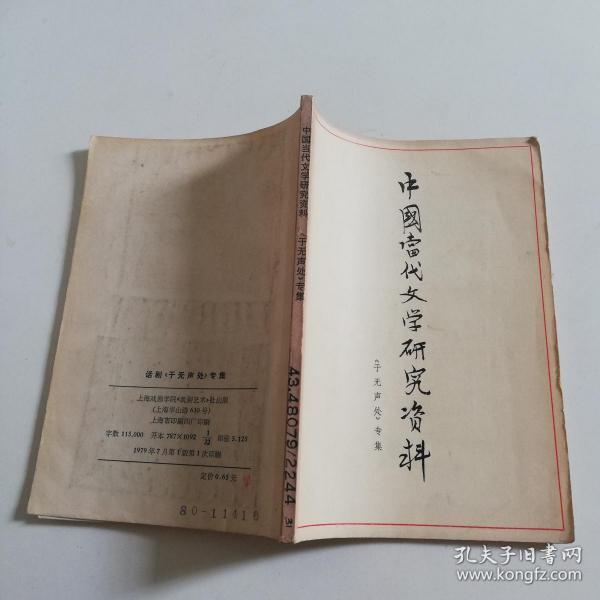 中國當代文学研究资料
《于无声处》专集
中国当代文学研究资料
《于无声处》专集
43.48079/2244
话剧《于无声处》专集
上海戏剧学院《戏剧艺术》社出版
(上海华山路630号)
上海市印刷四厂印刷
字数 115,000 开本 787×1092 1/32 印张 5.125
1979年7月第1版第1次印刷
定价 0.65元
80-11416
孔夫子旧书网
www.kongfz.com